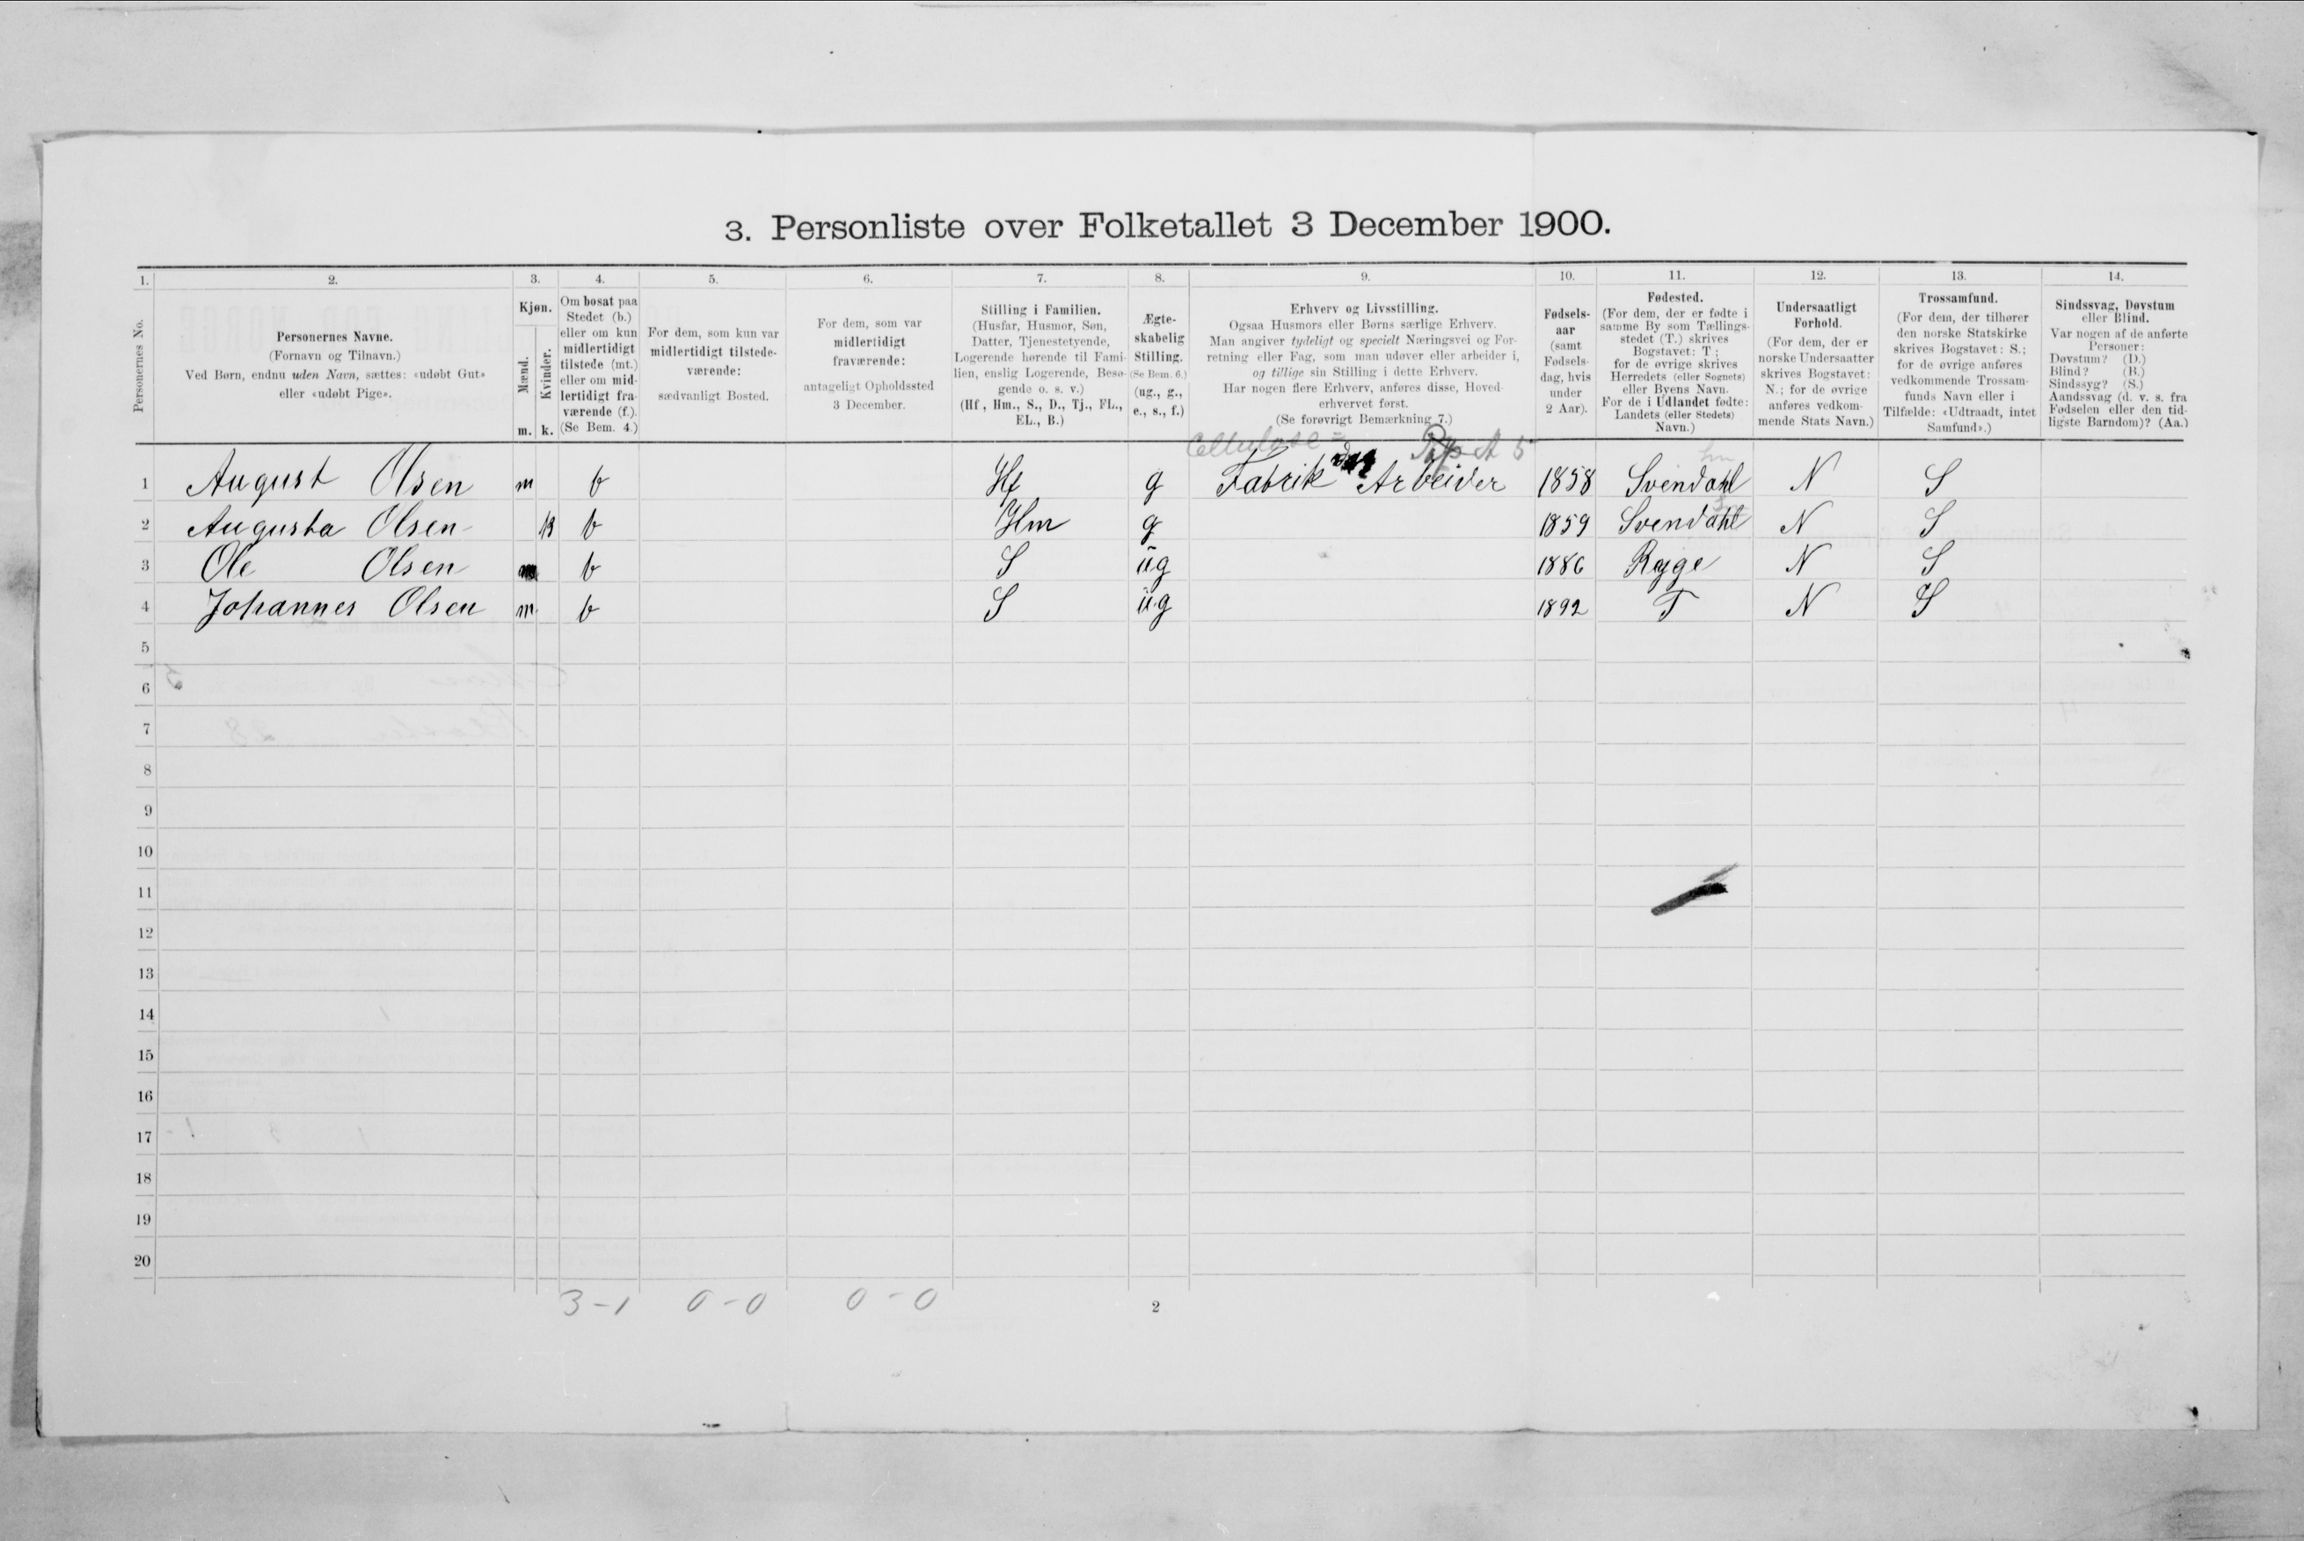 3. Personliste over Folketallet 3 December 1900.
1. 2. 3. 4. 5. 6. 7. 8. 9. 10. 11. 12. 13. 14.
Personernes No.
Personernes Navne.
(Fornavn og Tilnavn.)
Ved Børn, endnu uden Navn, sættes: «udøbt Gut»
eller «udøbt Pige».
Kjøn.
Mænd.
Kvinder.
m. k.
Om bosat paa
Stedet (b.)
eller om kun
midlertidigt
tilstede (mt.)
eller om mid-
lertidigt fra-
værende (f.).
(Se Bem. 4.)
For dem, som kun var
midlertidigt tilstede-
værende:
sædvanligt Bosted.
For dem, som var
midlertidigt
fraværende:
antageligt Opholdssted
3 December.
Stilling i Familien.
(Husfar, Husmor, Søn,
Datter, Tjenestetyende,
Logerende hørende til Fami-
lien, enslig Logerende, Besø-
gende o. s. v.)
(Hf, Hm., S., D., Tj., FL.,
EL., B.)
Ægte-
skabelig
Stilling.
(Se Bem. 6.)
(ug., g.,
e., s., f.)
Erhverv og Livsstilling.
Ogsaa Husmors eller Børns særlige Erhverv.
Man angiver tydeligt og specielt Næringsvei og For-
retning eller Fag, som man udøver eller arbeider i,
og tillige sin Stilling i dette Erhverv.
Har nogen flere Erhverv, anføres disse, Hoved-
erhvervet først.
(Se forøvrigt Bemærkning 7.)
Fødsels-
aar
(samt
Fødsels-
dag, hvis
under
2 Aar).
Fødested.
(For dem, der er fødte i
samme By som Tællings-
stedet (T.) skrives
Bogstavet: T;
for de øvrige skrives
Herredets (eller Sognets)
eller Byens Navn.
For de i Udlandet fødte:
Landets (eller Stedets)
Navn.)
Undersaatligt
Forhold.
(For dem, der er
norske Undersaatter
skrives Bogstavet:
N.; for de øvrige
anføres vedkom-
mende Stats Navn.)
Trossamfund.
(For dem, der tilhører
den norske Statskirke
skrives Bogstavet: S.;
for de øvrige anføres
vedkommende Trossam-
funds Navn eller i
Tilfælde: «Udtraadt, intet
Samfund».)
Sindssvag, Døvstum
eller Blind.
Var nogen af de anførte
Personer:
Døvstum? (D.)
Blind? (B.)
Sindssyg? (S.)
Aandssvag (d. v. s. fra
Fødselen eller den tid-
ligste Barndom)? (Aa.)
Cellulose=
1 August Olsen m b Hf g Fabrik Arbeider 1858 Svendahl N S
2 Augusta Olsen k b Hm g 1859 Svendahl N S
3 Ole Olsen m b S ug 1886 Rygge N S
4 Johannes Olsen m b S ug 1892 T N S
5
6
7
8
9
10
11
12
13
14
15
16
17
18
19
20
3-1 0-0 0-0
2